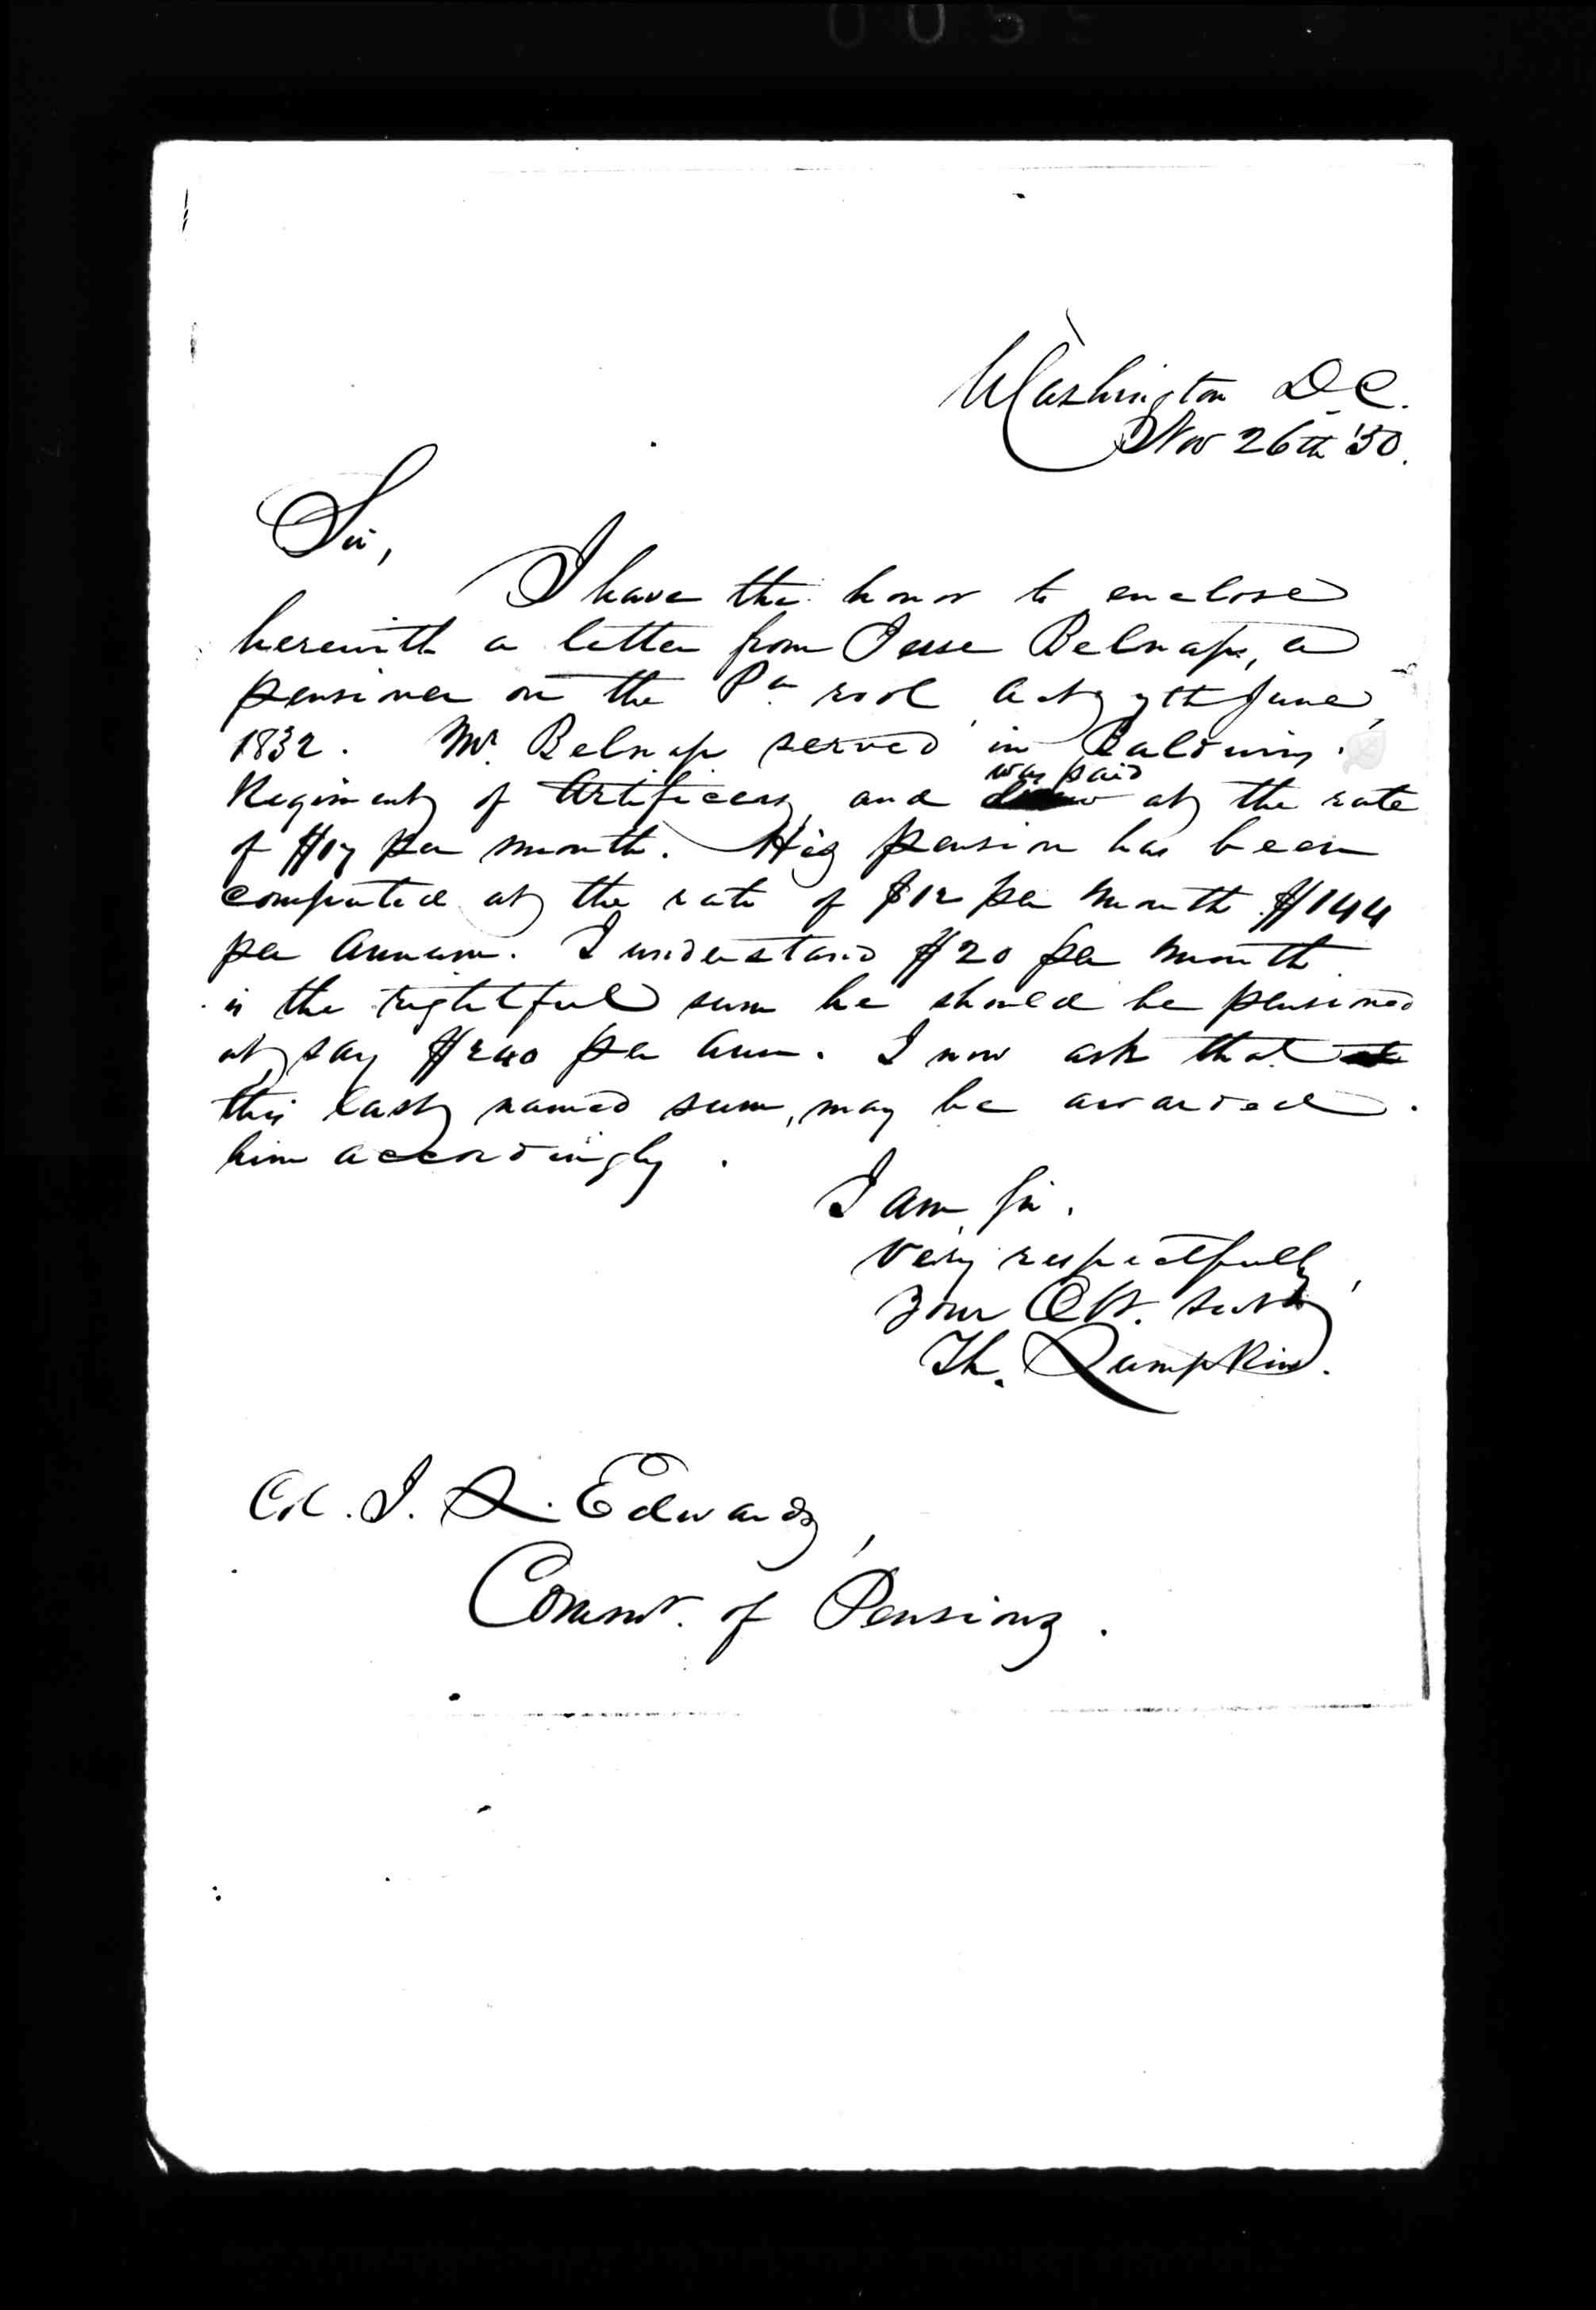 Washington D.C.
Nov 26th '50.
Sir,
I have the honor to enclose
herewith a letter from Jesse Belnap, a
pensioner on the Pa roll act 7th June,
1832. Mr. Belnap served in Baldwins
Regiment of Artificers, and was paid at the rate
of $17 per month. His pension has been
computed at the rate of $12 per month $144
per annum. I understand $20 per month
is the rightful sum he should be pensioned
at, say $240 per ann. I now ask that
this last named sum, may be awarded
him accordingly.
I am, Sir,
very respectfully,
your Obt. Servt
Th. Lumpkin.
Col. J. L. Edwards,
Commr. of Pensions.